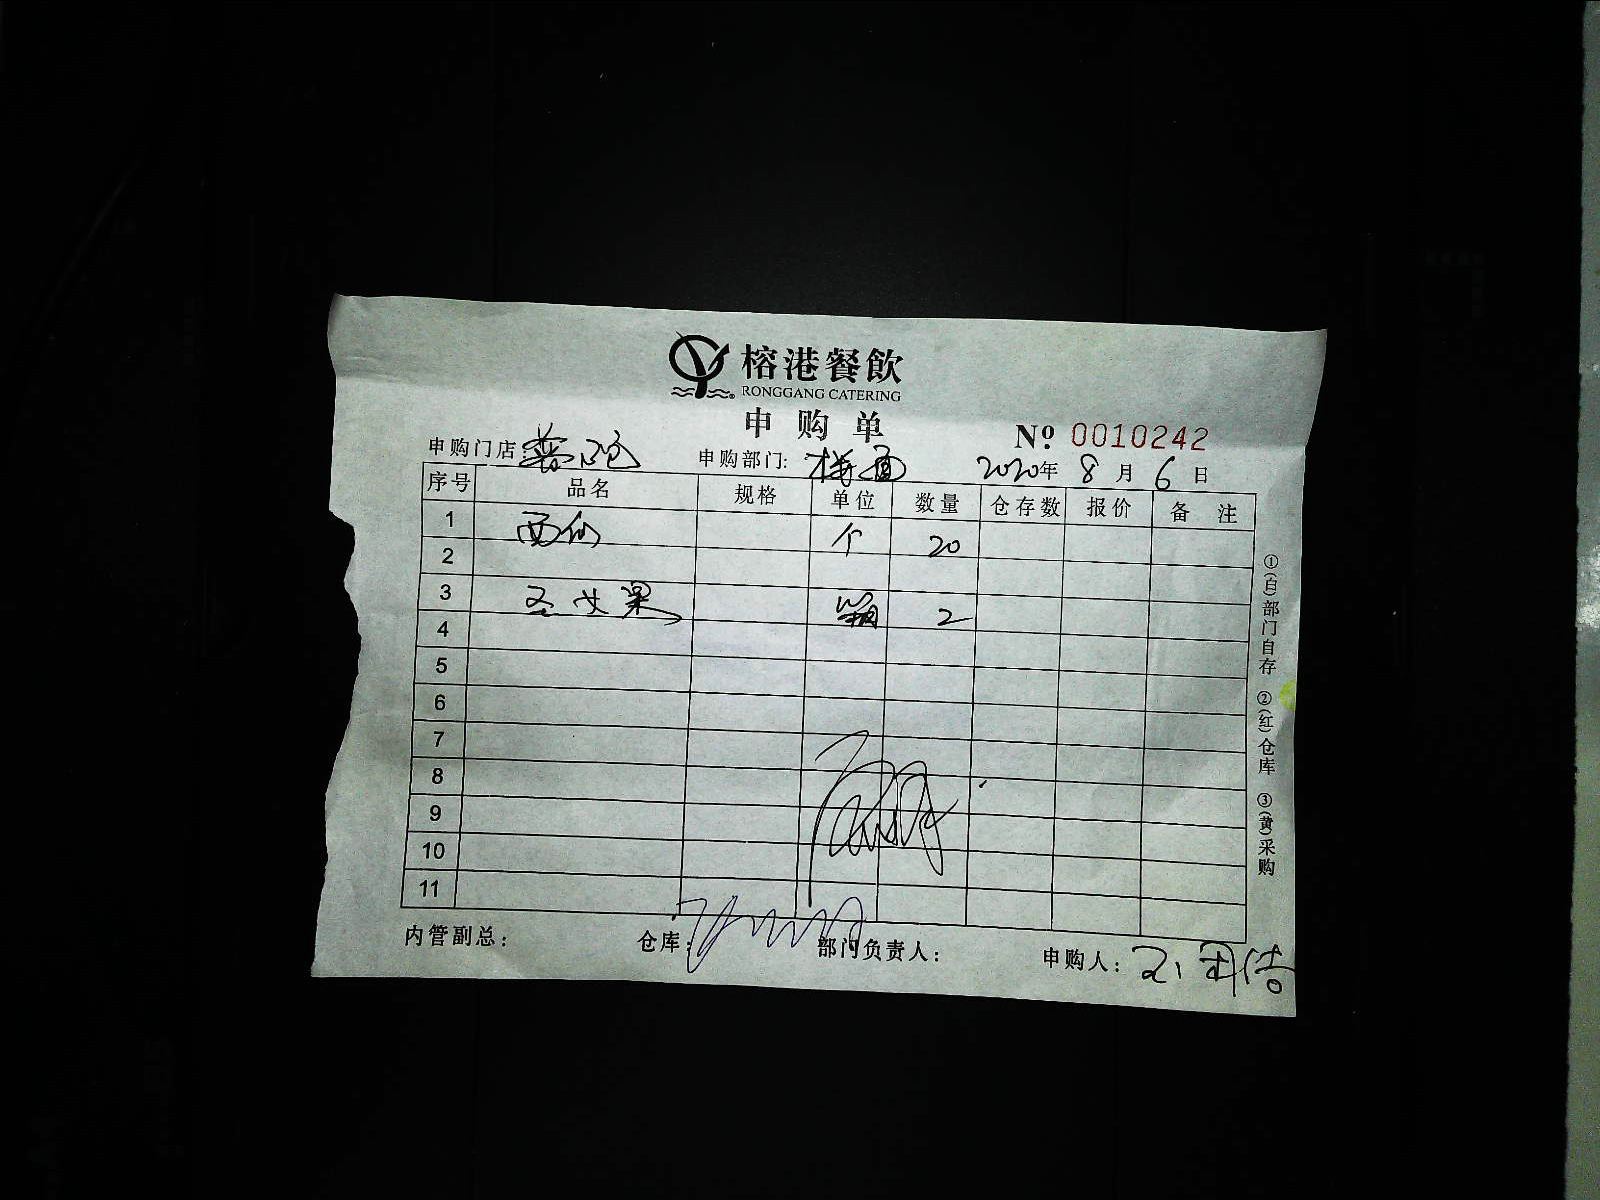 榕港餐飲
RONGGANG CATERING
申购单
№ 0010242
申购门店: 申购部门: 2020年 8月 6日
序号 品名 规格 单位 数量 仓存数 报价 备注
1 西仙 个 20
2
3 圣女果 2
4
5
6
7
8
9
10
11
内管副总: 仓库: 部门负责人: 申购人:
①(白)部门自存 ②(红)仓库 ③(黄)采购